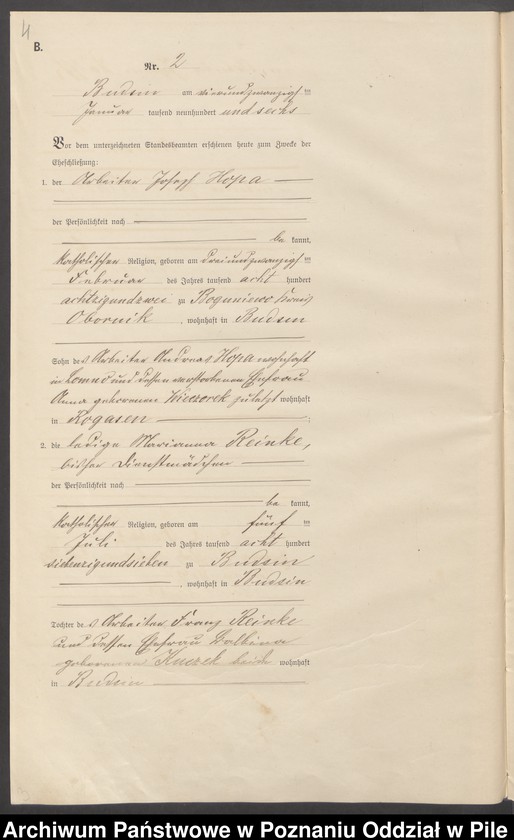 4
B.
Nr. 2
Budsin am vierundzwanzigsten
Januar tausend neunhundert und sechs
Vor dem unterzeichneten Standesbeamten erschienen heute zum Zwecke der
Eheschließung:
1. der Arbeiter Josef Hopa
der Persönlichkeit nach
be kannt,
katholischer Religion, geboren am dreiundzwanzigsten
Februar des Jahres tausend acht hundert
achtzigundzwei zu Boguniewo Kreis
Obornik, wohnhaft in Budsin
Sohn des Arbeiter Andreas Hopa wohnhaft
in und dessen verstorbenen Ehefrau
Anna geborenen Wieczorek zuletzt wohnhaft
in Rogasen ;
2. die ledige Marianna Reinke,
bisher Dienstmädchen
der Persönlichkeit nach
be kannt,
katholischer Religion, geboren am fünften
Juli des Jahres tausend acht hundert
siebenzigundsieben zu Budsin
, wohnhaft in Budsin
Tochter des Arbeiter Franz Reinke
und dessen Ehefrau Balbina
geborenen Kuczek beide wohnhaft
in Budsin
Archiwum Państwowe w Poznaniu Oddział w Pile